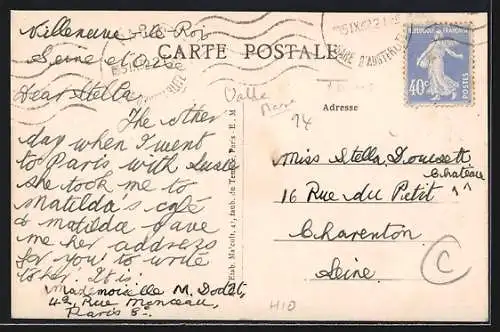 Villeneuve-le-Roi
Seine et Oise
CARTE POSTALE
Dear Stella,
The other
day when I went
to Paris with Susie
she took me to
Matilda's café
& Matilda gave
me her address
for you to write
to her. It is
Mademoiselle M. Dodat,
42, Rue Monceau,
Paris 8e.
Valle
Marne
94
Adresse
Miss Stella Doussett
Château
16 Rue du Petit ^^
Charenton
Seine.
C
H10
REPUBLIQUE FRANÇAISE
40c
POSTES
GARE D'AUSTERLITZ